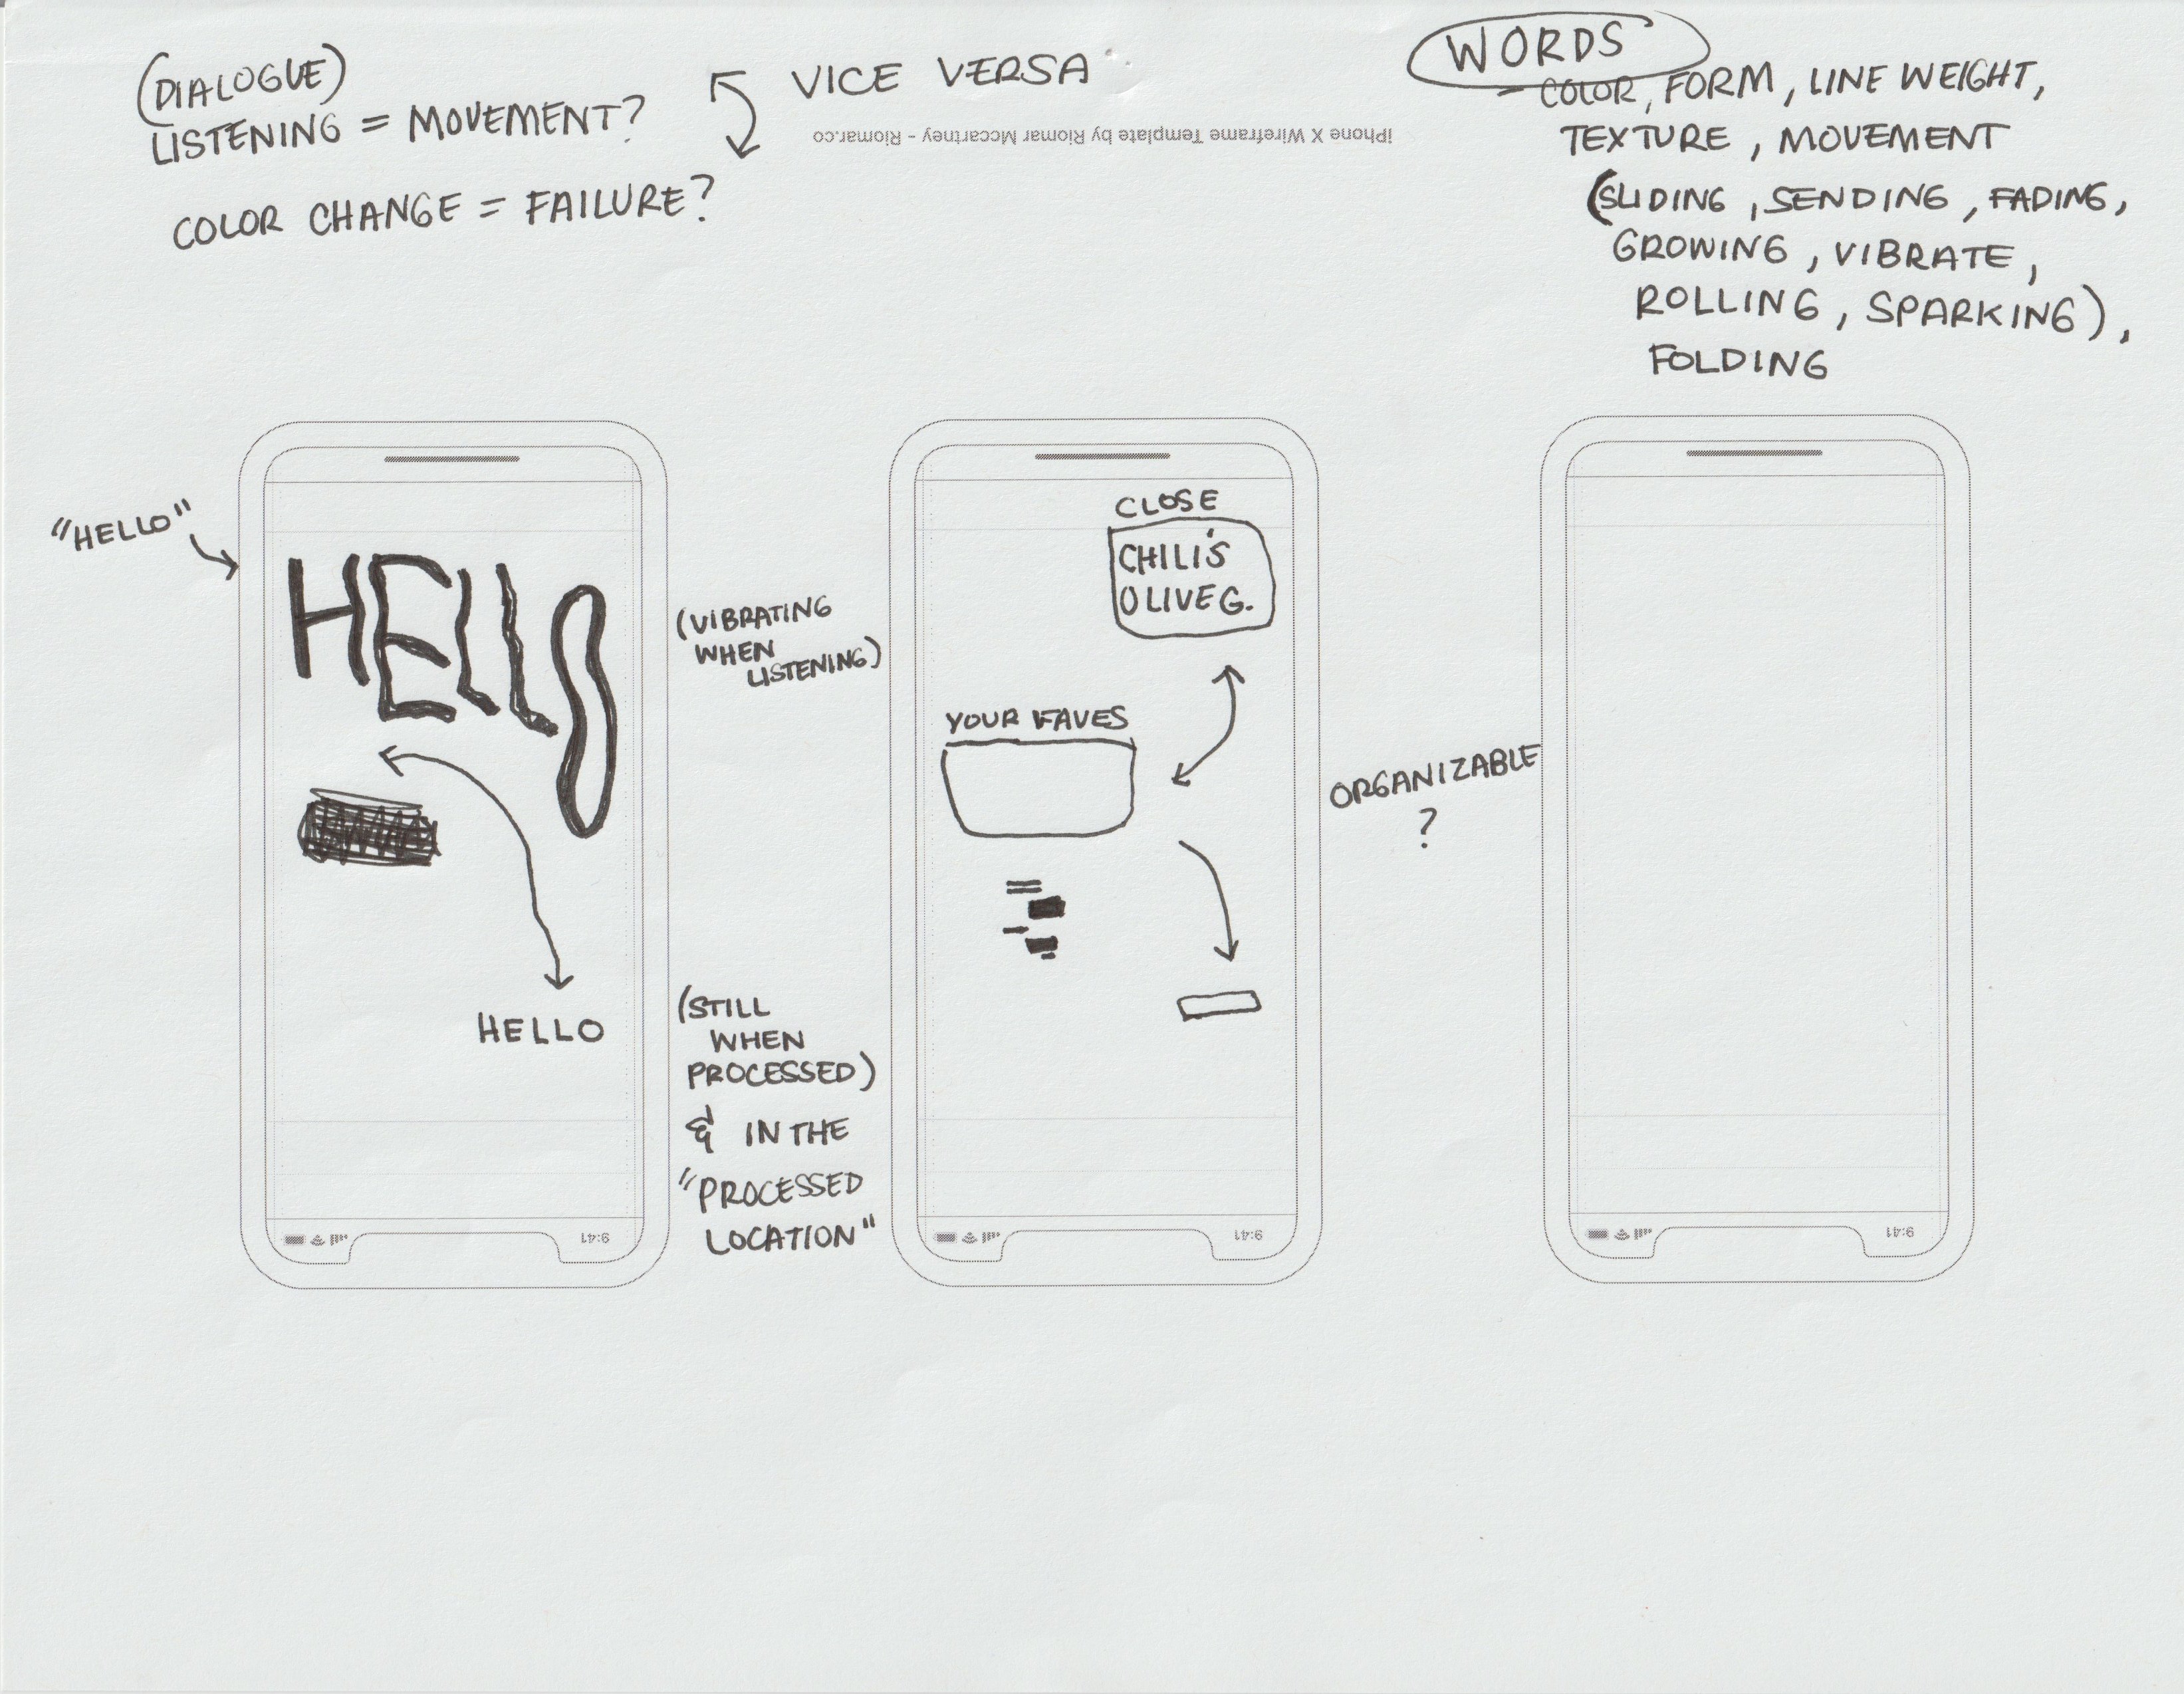 (DIALOGUE)
LISTENING = MOVEMENT?
COLOR CHANGE = FAILURE?
VICE VERSA
iPhone X Wireframe Template by Riomar Mccartney - Riomar.co
WORDS
- COLOR, FORM, LINE WEIGHT,
TEXTURE, MOVEMENT
(SLIDING, SENDING, FADING,
GROWING, VIBRATE,
ROLLING, SPARKING),
FOLDING
"HELLO"
HELLO
HELLO
9:41
(VIBRATING
WHEN
LISTENING)
(STILL
WHEN
PROCESSED)
& IN THE
"PROCESSED
LOCATION"
CLOSE
CHILI'S
OLIVE G.
YOUR FAVES
9:41
ORGANIZABLE
?
9:41